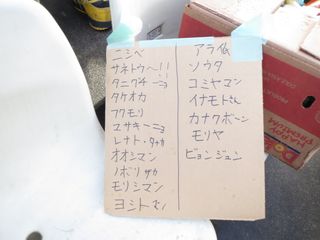 ニシベ
サネトウ〜!!
タニグチ
タケオカ
フクモリ
ユサキーニョ
レナト・タナカ
オオシマン
ノボリザカ
モリシマン
ヨシト
アラ
ソウタ
コミヤマン
イナモトさん
カナクボーン
モリヤ
ピョンジュン
HAPPY
PREMIUM